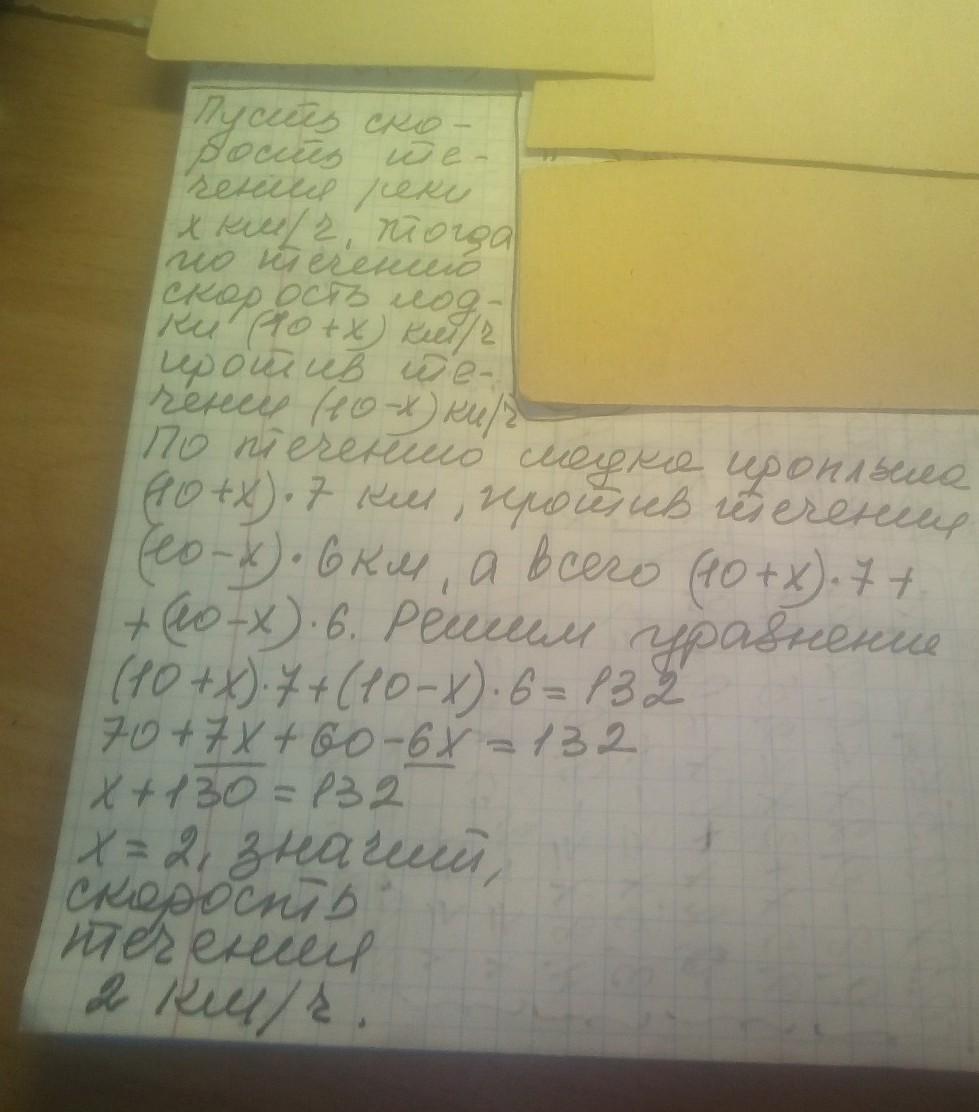 Пусть ско-
рость те-
чения реки
х км/ч, тогда
по течению
скорость лод-
ки (10+х) км/ч
против те-
чении (10-х) км/ч
По течению лодка проплыла
(10+х)·7 км, против течения
(10-х)·6 км, а всего (10+х)·7+
+(10-х)·6. Решим уравнение
(10+х)·7+(10-х)·6=132
70+7х+60-6х=132
х+130=132
х=2, значит,
скорость
течения
2 км/ч.